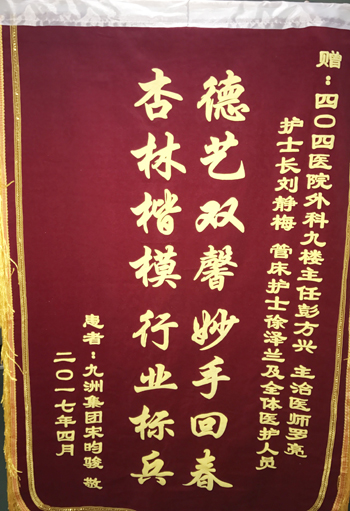 赠：四〇四医院外科九楼主任彭方兴 主治医师罗亮
护士长刘静梅 管床护士徐泽兰及全体医护人员
德艺双馨 妙手回春
杏林楷模 行业标兵
患者：九洲集团宋昀骏 敬
二〇一七年四月